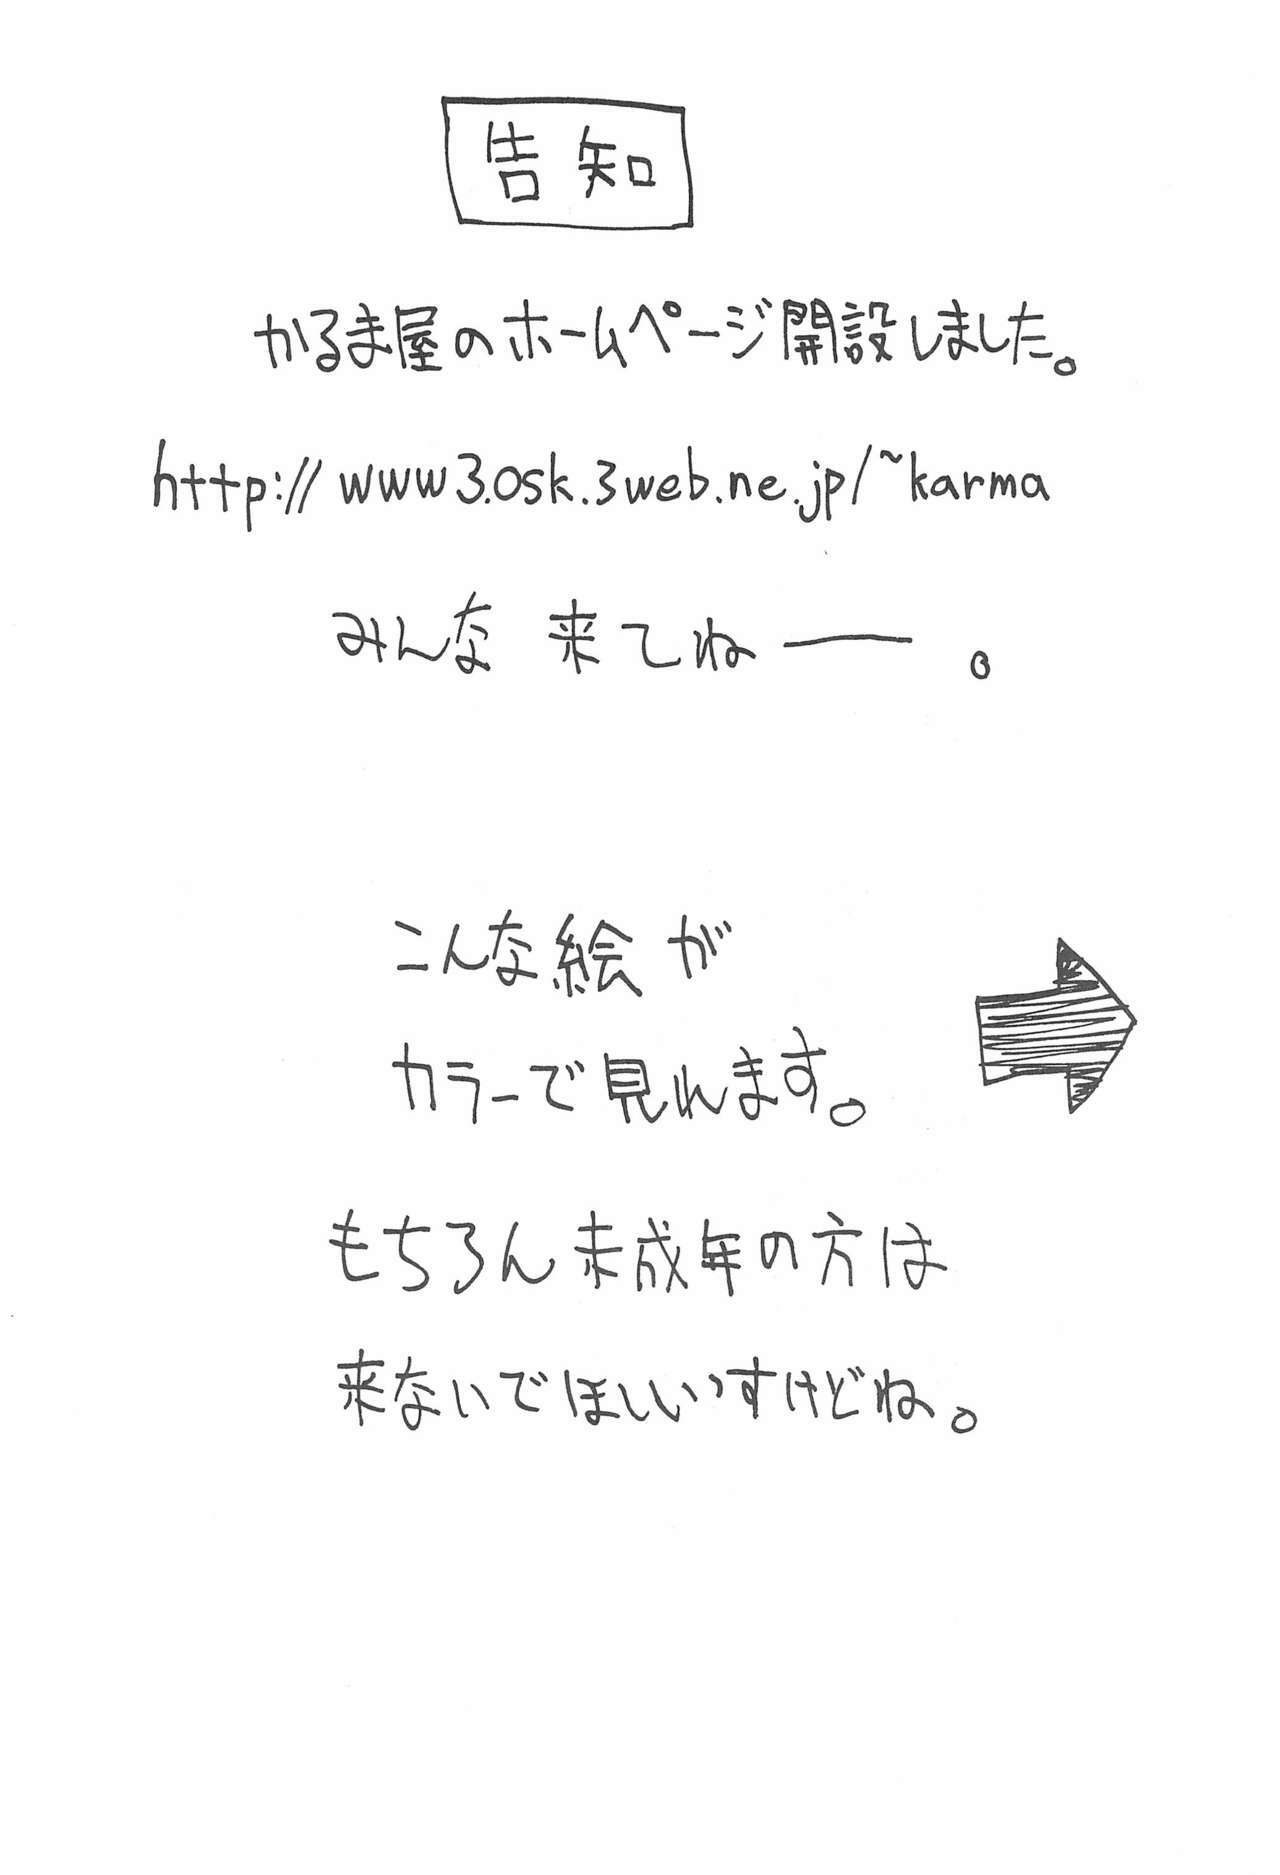 告知
かるま屋のホームページ開設しました。
http://www3.osk.3web.ne.jp/~karma
みんな 来てねー。
こんな絵が
カラーで見れます。
もちろん未成年の方は
来ないでほしいっすけどね。